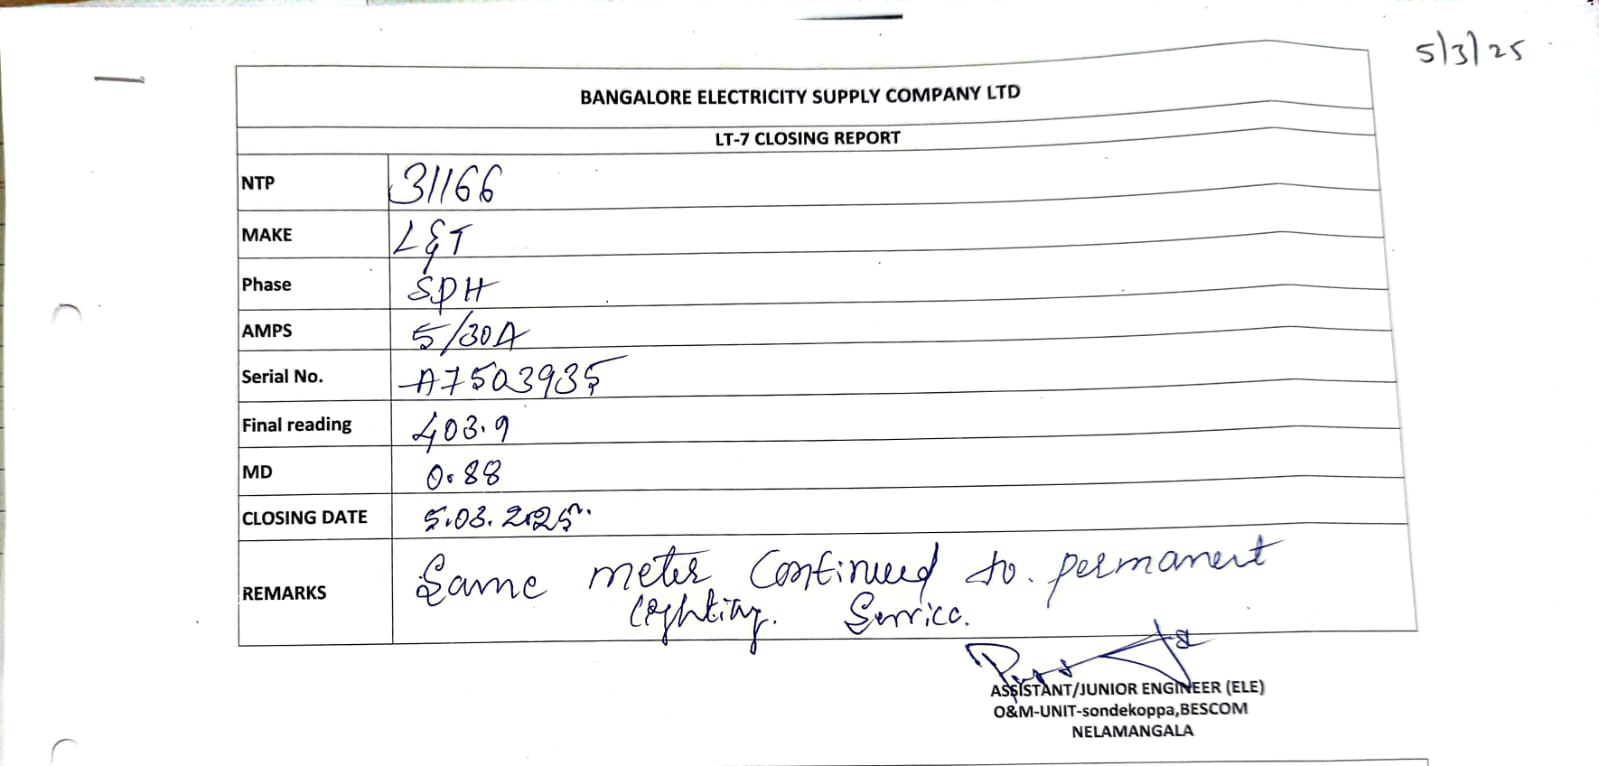 5/3/25
BANGALORE ELECTRICITY SUPPLY COMPANY LTD
LT-7 CLOSING REPORT
NTP 31166
MAKE L&T
Phase SPH
AMPS 5/30A
Serial No. A7503935
Final reading 403.9
MD 0.88
CLOSING DATE 5.03.2025.
REMARKS Same meter Continued to. permanent
lighting. Service.
ASSISTANT/JUNIOR ENGINEER (ELE)
O&M-UNIT-sondekoppa,BESCOM
NELAMANGALA